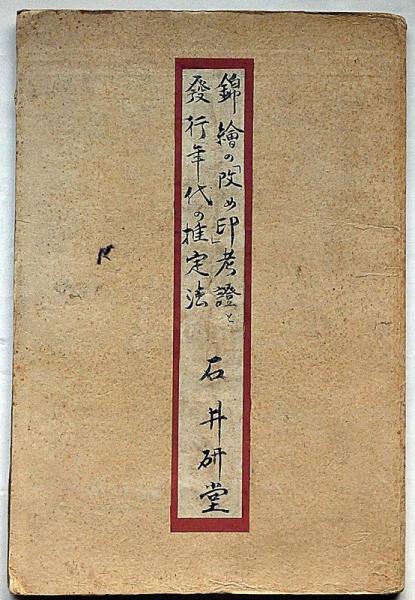 錦繪の「改め印」考證と
發行年代の推定法
石井研堂